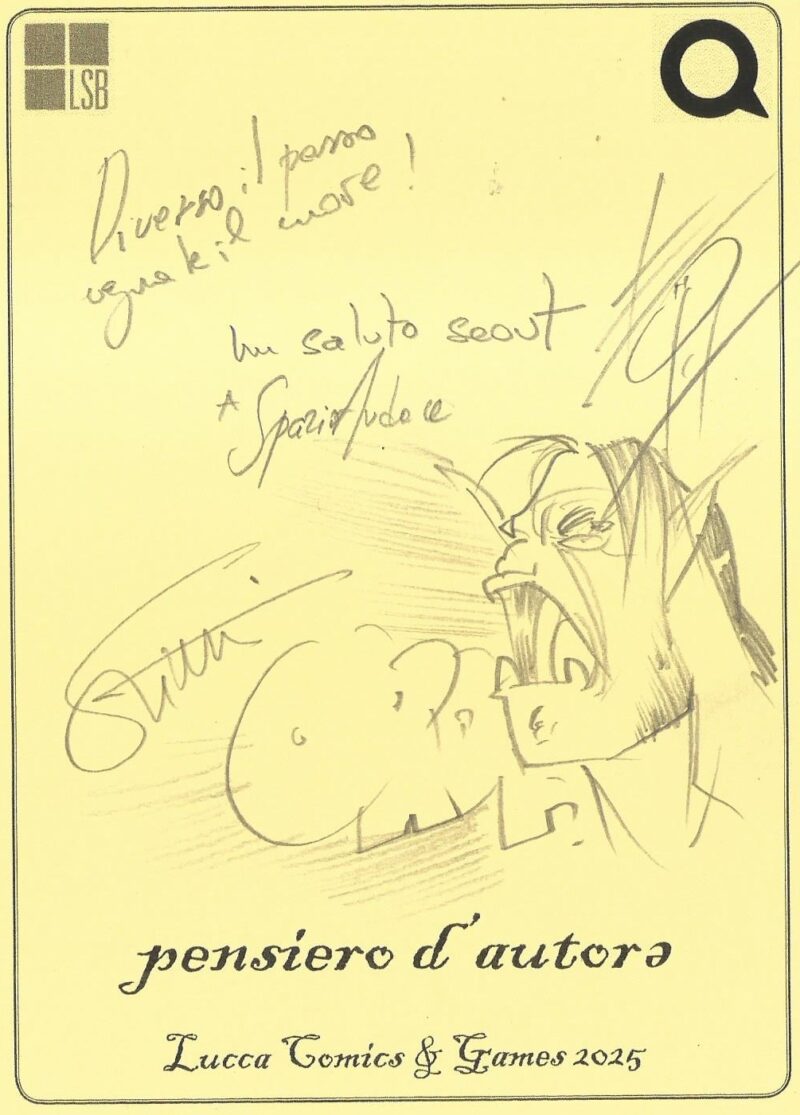 LSB
Diverso il passo
uguale il cuore!
un saluto scout
A SpazioAudace
pensiero d'autorə
Lucca Comics & Games 2025